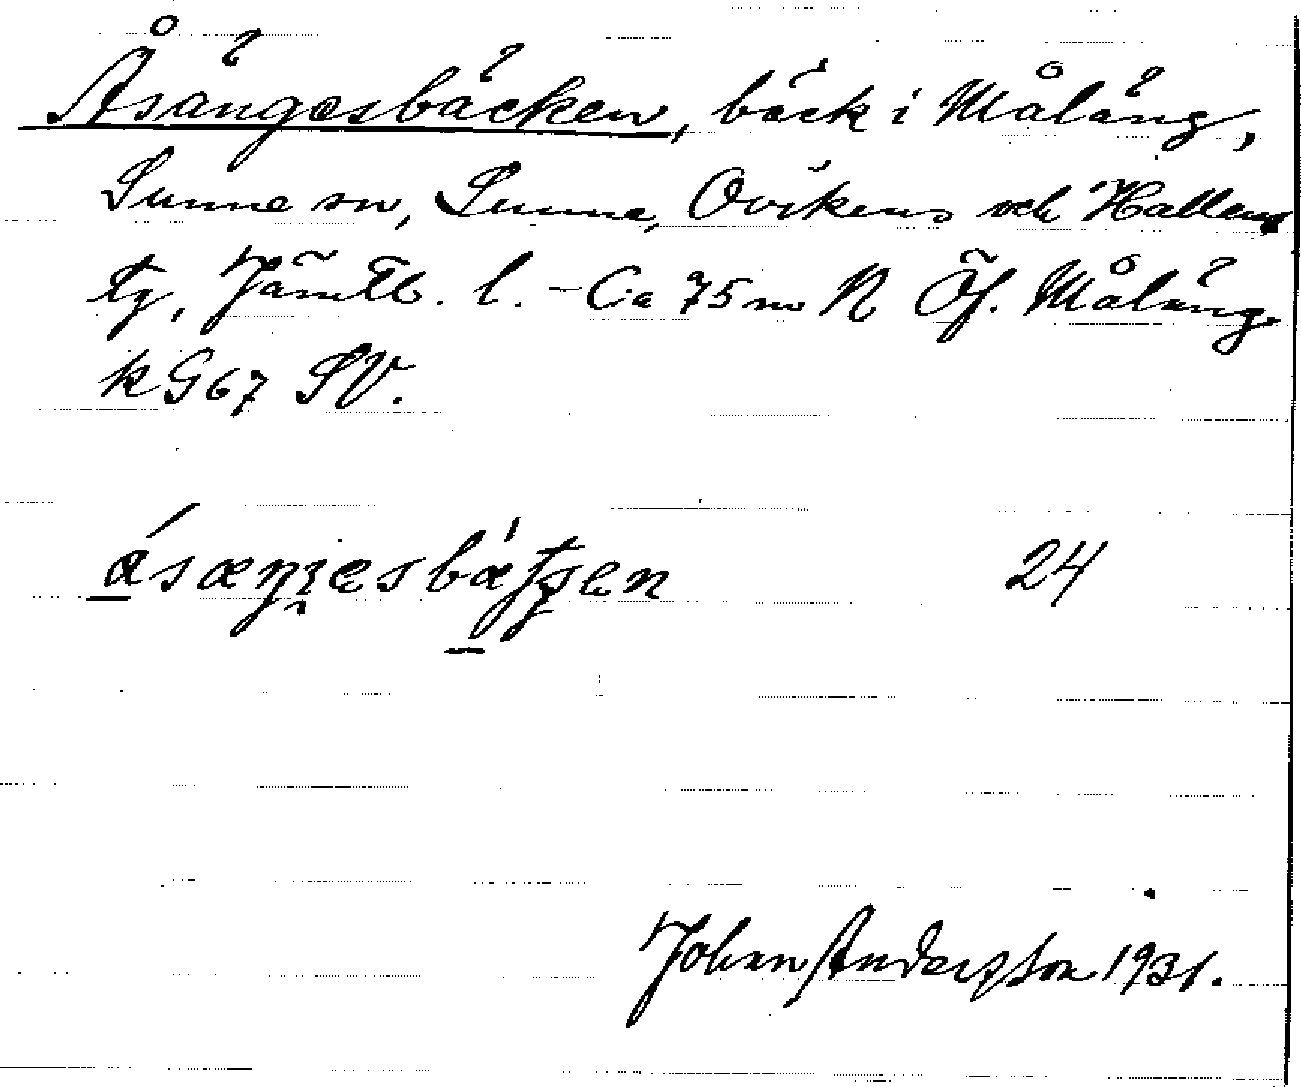 Åsängesbäcken, bäck i Måläng,
Sunne sn, Sunne, Ovikens och Hallens
tg, Jämtl. l. - Ca 75 m N Öf. Måläng
k G67 SV.
24
Johan Andersson 1931.